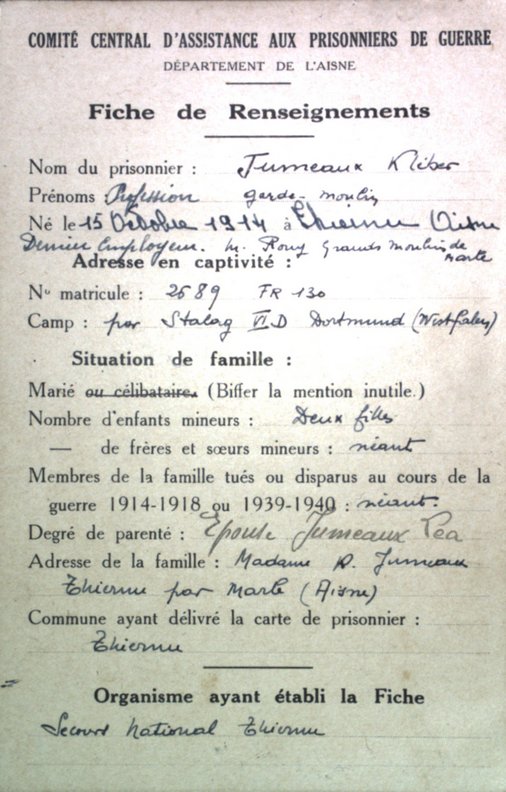 COMITÉ CENTRAL D'ASSISTANCE AUX PRISONNIERS DE GUERRE
DÉPARTEMENT DE L'AISNE
Fiche de Renseignements
Nom du prisonnier : Jumeaux Kléber
Prénoms Profession garde-moulin
Né le 15 Octobre 1914 à Thiernu Aisne
Dernier Employeur. M. Rouy Grands Moulins de Marle
Adresse en captivité :
No matricule : 2689 FR 130
Camp : par Stalag VI D Dortmund (Westfalen)
Situation de famille :
Marié ou célibataire. (Biffer la mention inutile.)
Nombre d'enfants mineurs : Deux filles
— de frères et sœurs mineurs : néant
Membres de la famille tués ou disparus au cours de la
guerre 1914-1918 ou 1939-1940 : néant.
Degré de parenté : Epouse Jumeaux Léa
Adresse de la famille : Madame Jumeaux
Thiernu par Marle (Aisne)
Commune ayant délivré la carte de prisonnier :
Thiernu
Organisme ayant établi la Fiche
Secours National Thiernu